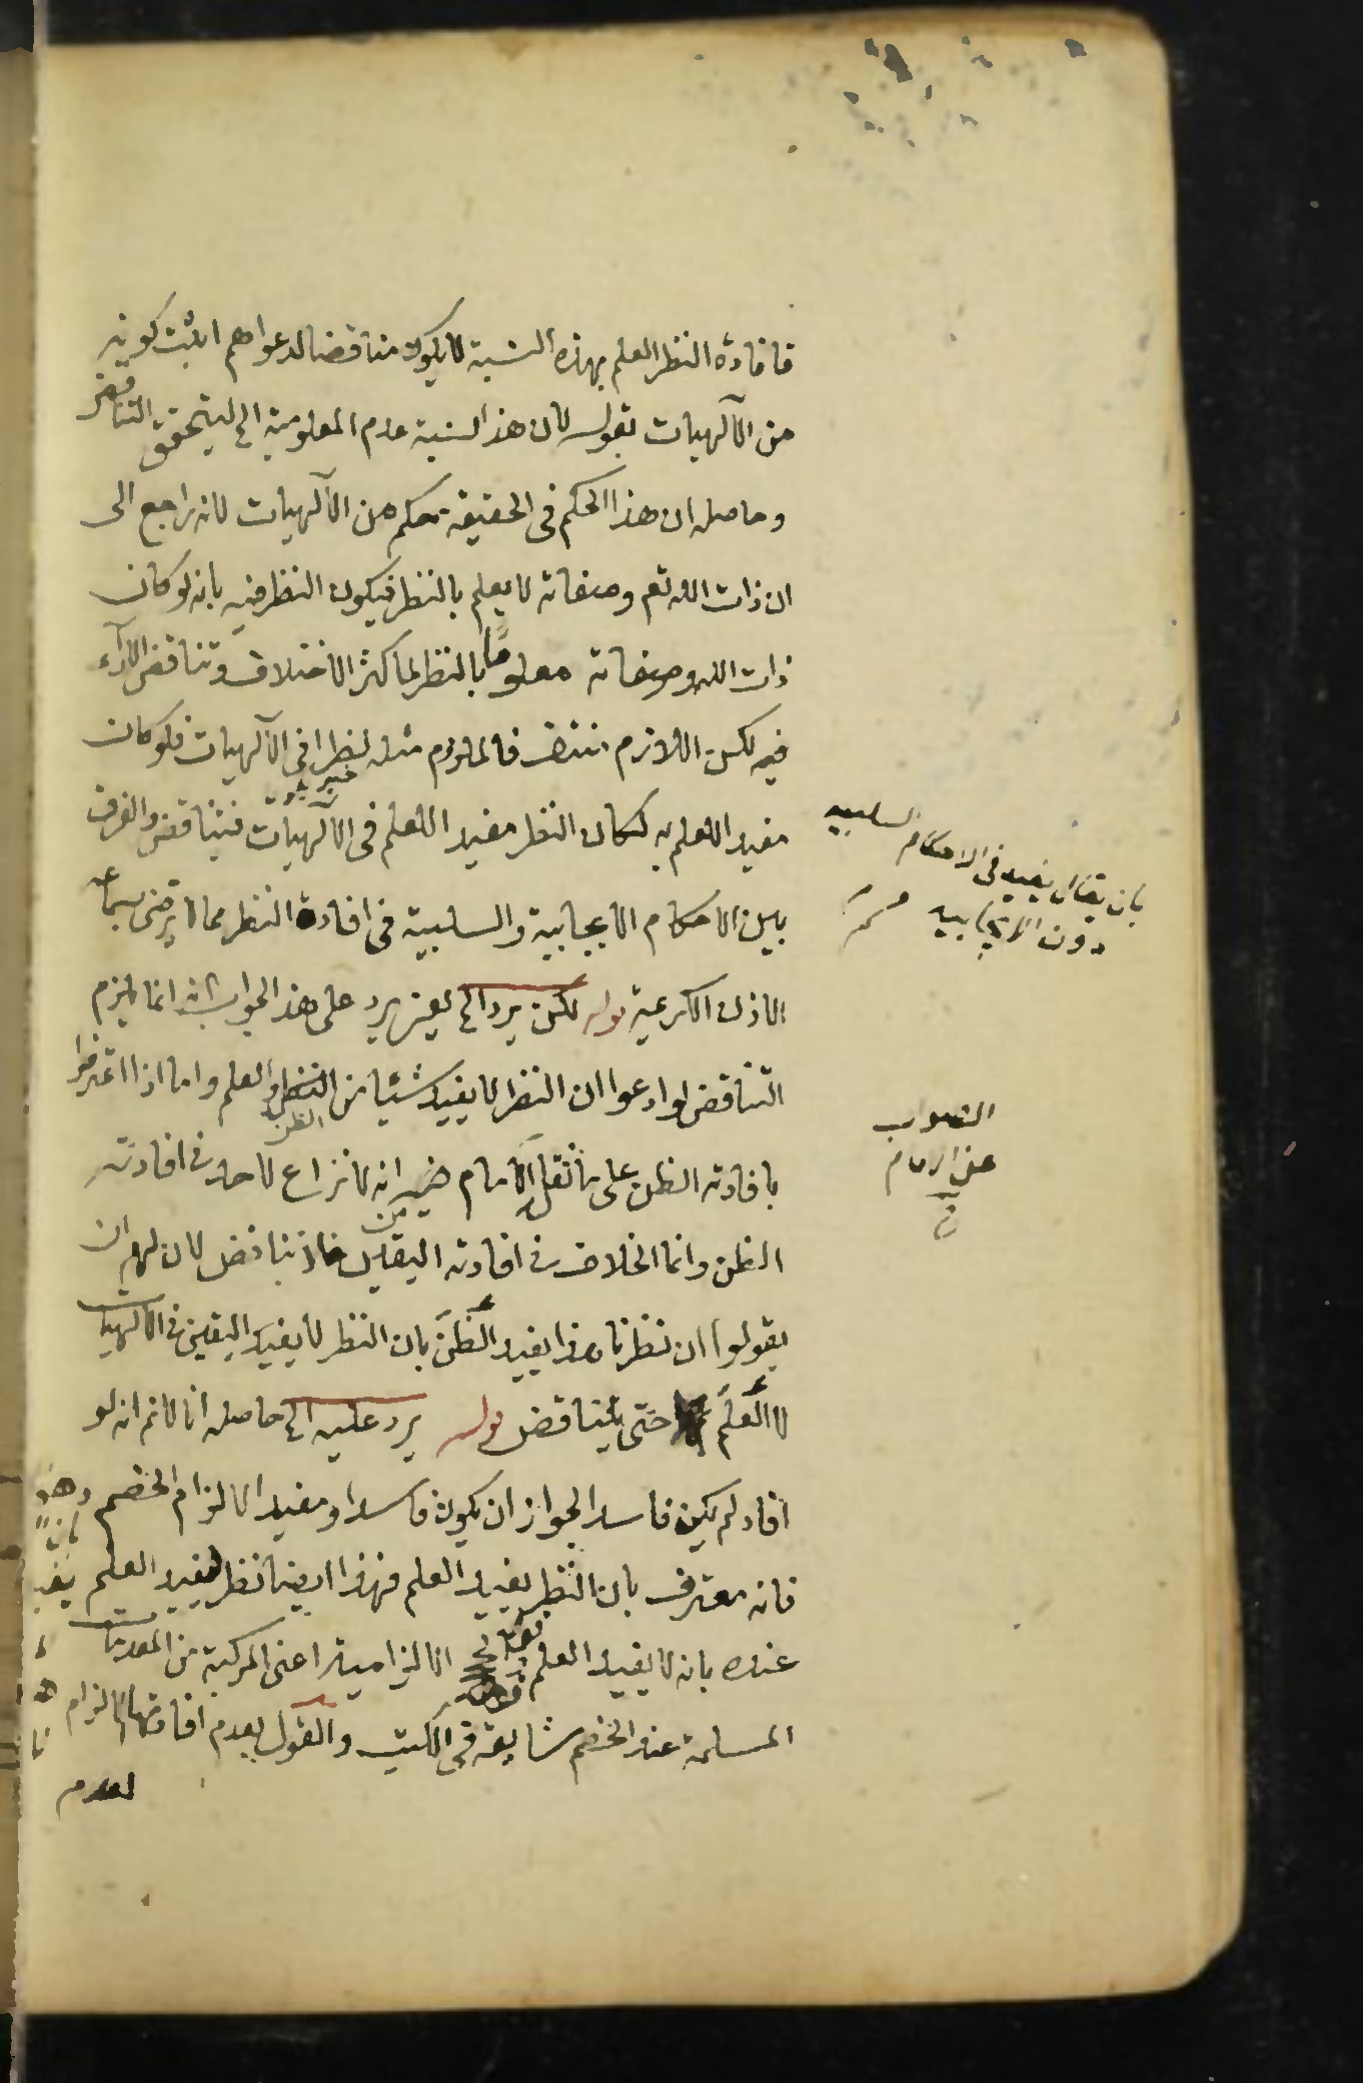 فافادة النظر العلم بهذه النسبة لا يكون مناقضا لدعواهم اثبت كونه
من الآلهيات بقوله لان هذا نسبة عدم المعلومية الخ ليتحقق التناقض
وحاصله ان هذا الحكم فى الحقيقة حكم من الآلهيات لانه راجع الى
ان ذات الله تع وصفاته لا يعلم بالنظر فيكون النظر فيه بانه لو كان
ذات الله وصفاته معلوما بالنظر لما كثر الاختلاف وتناقض الآراء
فيه لكن اللازم منتف فالملزوم مثله نظرا فى الآلهيات فلو كان
مفيدا للعلم به لكان النظر مفيدا للعلم فى الآلهيات فيتناقض والفرق
بين الاحكام الايجابية والسلبية فى افادة النظر مما لا يرضى بسماعه
الاذن الكريمة قوله لكن يرد الخ يعنى يرد على هذا الجواب انه انما يلزم
التناقض لو ادعوا ان النظر لا يفيد شيئا من الظن والعلم واما اذا اعترفوا
بافادته الظن على ما نقل الامام من انه لا نزاع لاحد فى افادته
الظن وانما الخلاف فى افادته اليقين فلا تناقض لان لهم ان
يقولوا ان نظرنا هذا يفيد الظن بان النظر لا يفيد اليقين فى الآلهيات
لا العلم حتى يتناقض قوله يرد عليه الخ حاصله انا لا نم انه لو
افاد لم يكن فاسدا لجواز ان يكون فاسدا ومفيدا لالزام الخصم
فانه معترف بان النظر يفيد العلم فهذا ايضا نظر يفيد العلم
عنده بانه لا يفيد العلم الالزامية اعنى المركبة من المقدمات
المسلمة عند الخصم شايعة فى الكتب والقول بعدم افادتها الالزام
لعدم
بان يقال يفيد فى الاحكام السلبيه
دون الايجابيه
الصواب
عن الامام